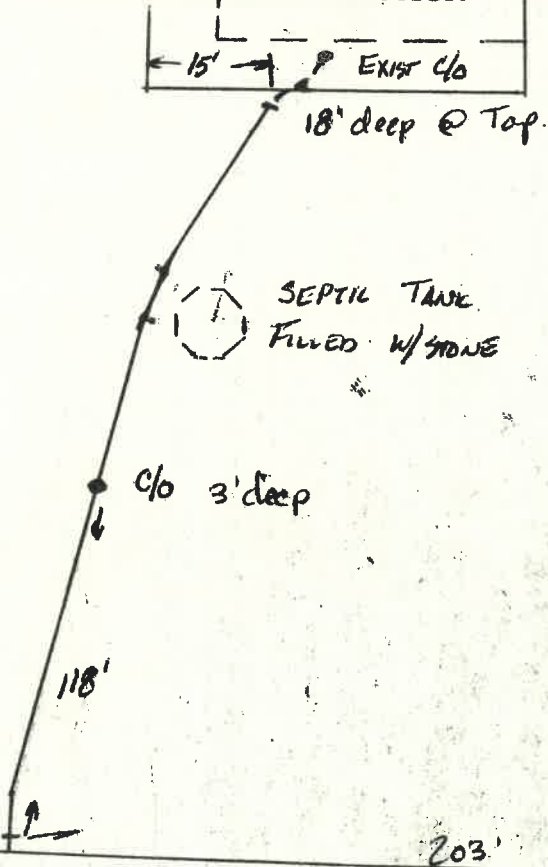 15' EXIST C/O
18" deep @ Top.
SEPTIC TANK
FILLED W/STONE
C/O 3' deep
118'
203'